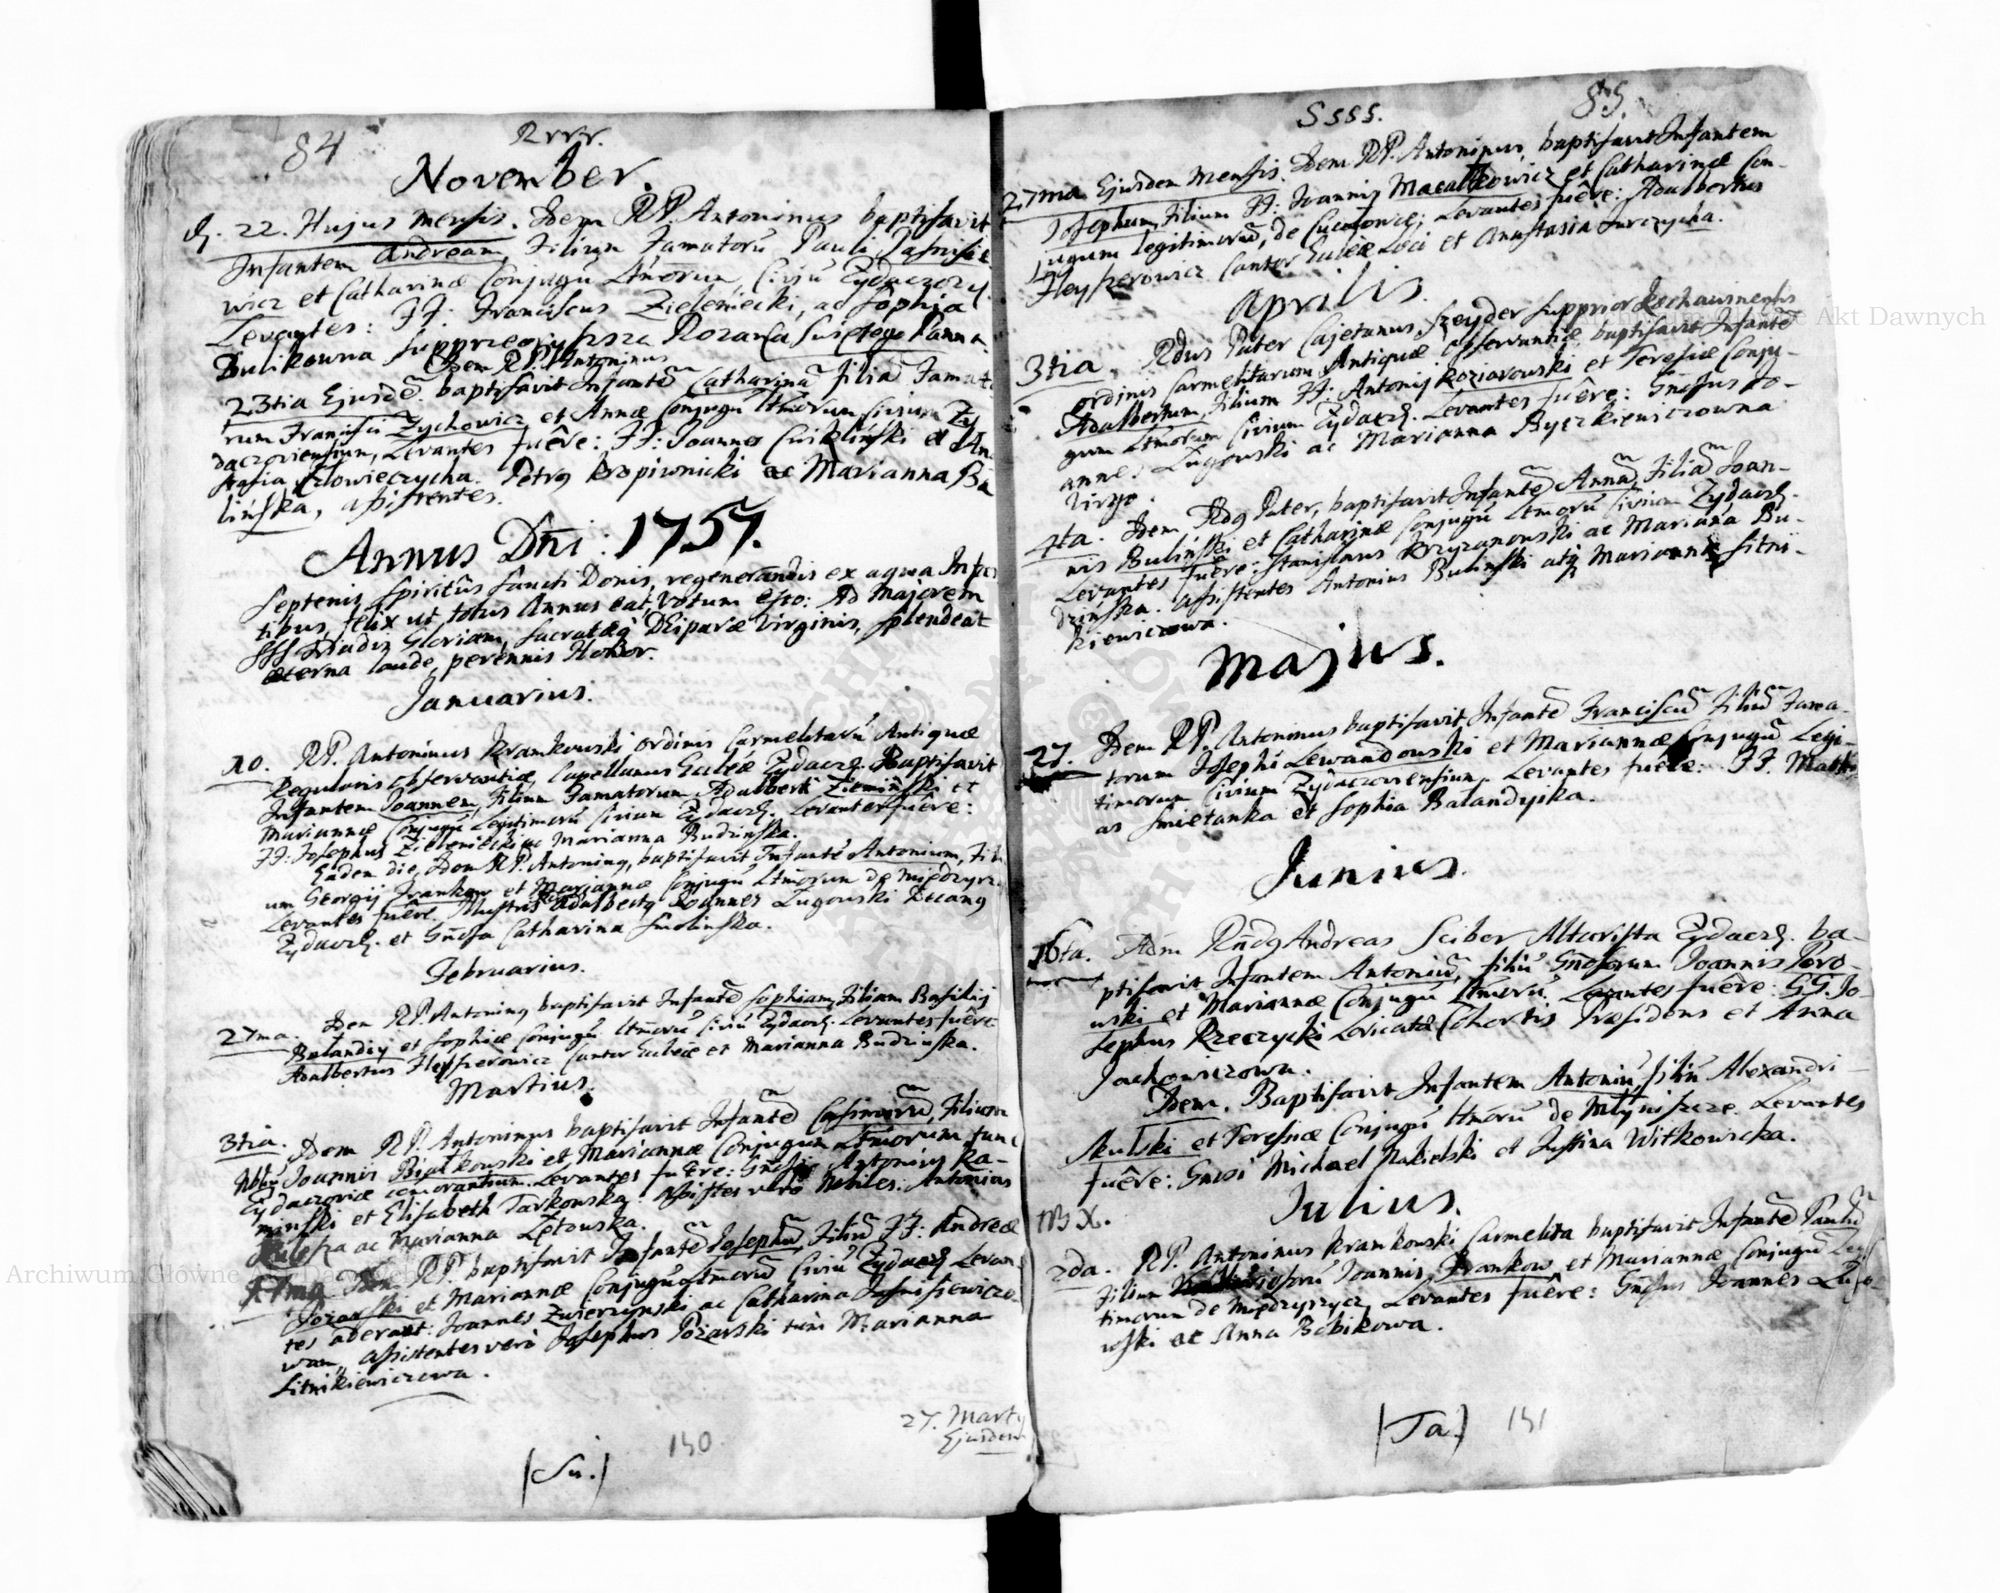 84
Rrrr.
November.
D. 22. Hujus mensis. Idem RP. Antoninus baptisavit
Infantem Andream, Filium Famatorũ Pauli
wicz et Catharinæ Conjugũ Ltm̃orum, Civiũ Zydaczov.
Levantes: FF: Franciscus Zieleniecki, ac Sophia
Bulikowna Rozanca Swiętego Panna.
Idem RP. Antoninus
23tia Ejusdẽ. baptisavit Infantẽ Catharinã Filiã Famat-
rum Francisci Zychowicz et Annæ Conjugũ Ltm̃orum Civium Zy-
daczoviensium, Levantes fuêre: FF: Joannes Cwikliński et An-
stasia Człowieczycha. Petrq Kropiwnicki ac Marianna Bu-
lińska, assistentes.
Annus Dñi: 1757.
Septenis Spiritûs Sancti Donis, regenerandis ex aqua Infan-
tibus, felix ut totus Annus eat, Votum esto: Ad Majorem
SSS Triadis Gloriam, Sacratæq Deiparæ Virginis, splendeat
æterna laude, perennis Honor.
Januarius.
10. RP. Antoninus Krankowski Ordinis Carmelitarũ Antiquæ
Regularis observantiæ, Capellanus Eccłæ Zydacz. Baptisavit
Infantem Joannem, Filium Famatorum Adalberti Ziemiński et
Mariannæ Conjugũ Legitimorũ Civium Zydacz. Levantes fuêre:
FF: Josephus Zieleniecki ac Marianna Budzińska.
Eadem die, Idem RP. Antoninq, baptisavit Infantẽ Antonium, Fili-
um Georgij Frankow et Mariannæ Conjugũ Ltm̃orum de Międzyrz.
Levantes fuêre. Illustris Adalbertq Joannes Ługowski Decanq
Zydacz. et Gñosa Catharina Smolińska.
Februarius.
27ma. Idem RP. Antoninq baptisavit Infantẽ Sophiam, Filiam Basilij
Balandiy et Sophiæ Conjugũ Ltm̃orũ Civiũ Zydacz. Levantes fuêre
Adalbertus Heyszerowicz Cantor Eccłæ et Marianna Budzińska.
Martius.
3tia. Idem RP. Antoninus baptisavit Infantẽ Casimirũ, Filium
Nbliũ Joannis Białkowski et Mariannæ Conjugum Ltm̃orum tunc
Zydaczoviæ commorantium. Levantes fuêre: Gñosi Antonius Ka-
miński et Elisabeth Tarkowska: Assistẽtes verò Nobiles: Antonius
Kulesza ac Marianna Zętowska.
Idem RP. baptisavit Infantẽ Josephũ, Filiũ FF: Andreæ
Pozarski et Mariannæ Conjugũ Ltm̃orũ Civiũ Zydacz Levan-
tes aderant: Joannes Zwierzynski ac Catharina Jasnisiewiczo-
wa, assistentes verò Josephus Pozarski tum Marianna
Sitnikiewiczowa.
27. Martij
Ejusdem
(Su.)
130
Ssss.
85.
27ma Ejusdem Mensis. Idem RP. Antoninus, baptisavit Infantem
Josephum, Filium FF: Joannis et Catharinæ Con-
jugum legitimorũ, de Levantes fuêre: Adalbertus
Heyszerowicz Cantor Eccłæ Loci et Anastasia Jurczycha.
Aprilis.
3tia. Rdus Pater Cajetanus Szeyder Supprior
Ordinis Carmelitarum Antiquæ observantiæ baptisavit Infantẽ
Adalbertum, Filium FF: Antonij Koziorowski et Teresiæ Conju-
gum Ltm̃orum Civium Zydacz. Levantes fuêre: Gñosus Jo-
annes Ługowski ac Marianna Byczkiensczowna
Virgo.
4ta. Idem Rdq Pater, baptisavit Infantẽ Annã, Filiã Joan-
nis Buliński et Catharinæ Conjugũ Ltm̃orũ Civium Zydacz.
Levantes fuêre: Stanislaus Krzyzanowski ac Mariana Bu-
dzińska. Assistentes Antonius Buliński atq Marianna Sitni-
kiewiczowa.
Majus.
27. Idem RP. Antoninus baptisavit Infantẽ Franciscũ Filiũ Fama-
torum Josephi Lewandowski et Mariannæ Conjugũ Legi-
timorum Civium Zydaczoviensium. Levantes fuêre: FF. Mathi-
as Smietanka et Sophia Balandyika.
Junius.
16ta. Adm Rñdq Andreas Scibor Altarista Zydacz. ba-
ptisavit Infantem Antoniũ, filiũ Gñosorum Joannis Poro-
wski et Mariannæ Conjugũ Ltm̃orũ. Levantes fuêre: GG. Jo-
sephus Rzeczycki Loricatæ Cohortis Præsidens et Anna
Jachowiczowa.
Idem. Baptisavit Infantem Antoniũ, filiũ Alexandri
Skulski et Teresiæ Conjugũ Ltm̃orũ de Młyniszcze. Levantes
fuêre: Gnosi Michael Nakielski et Justina Witkowicka.
NB X.
Julius.
2da. RP. Antoninus Krankowski Carmelita baptisavit Infantẽ Paulũ
Filium Joannis Frankow et Mariannæ Conjugũ Legi-
timorum de Międzyrzycz. Levantes fuêre: Gñosus Joannes Ługo-
wski et Anna Bobikowa.
(Ta.)
131
Archiwum Główne Akt Dawnych
Archiwum Główne Akt Dawnych